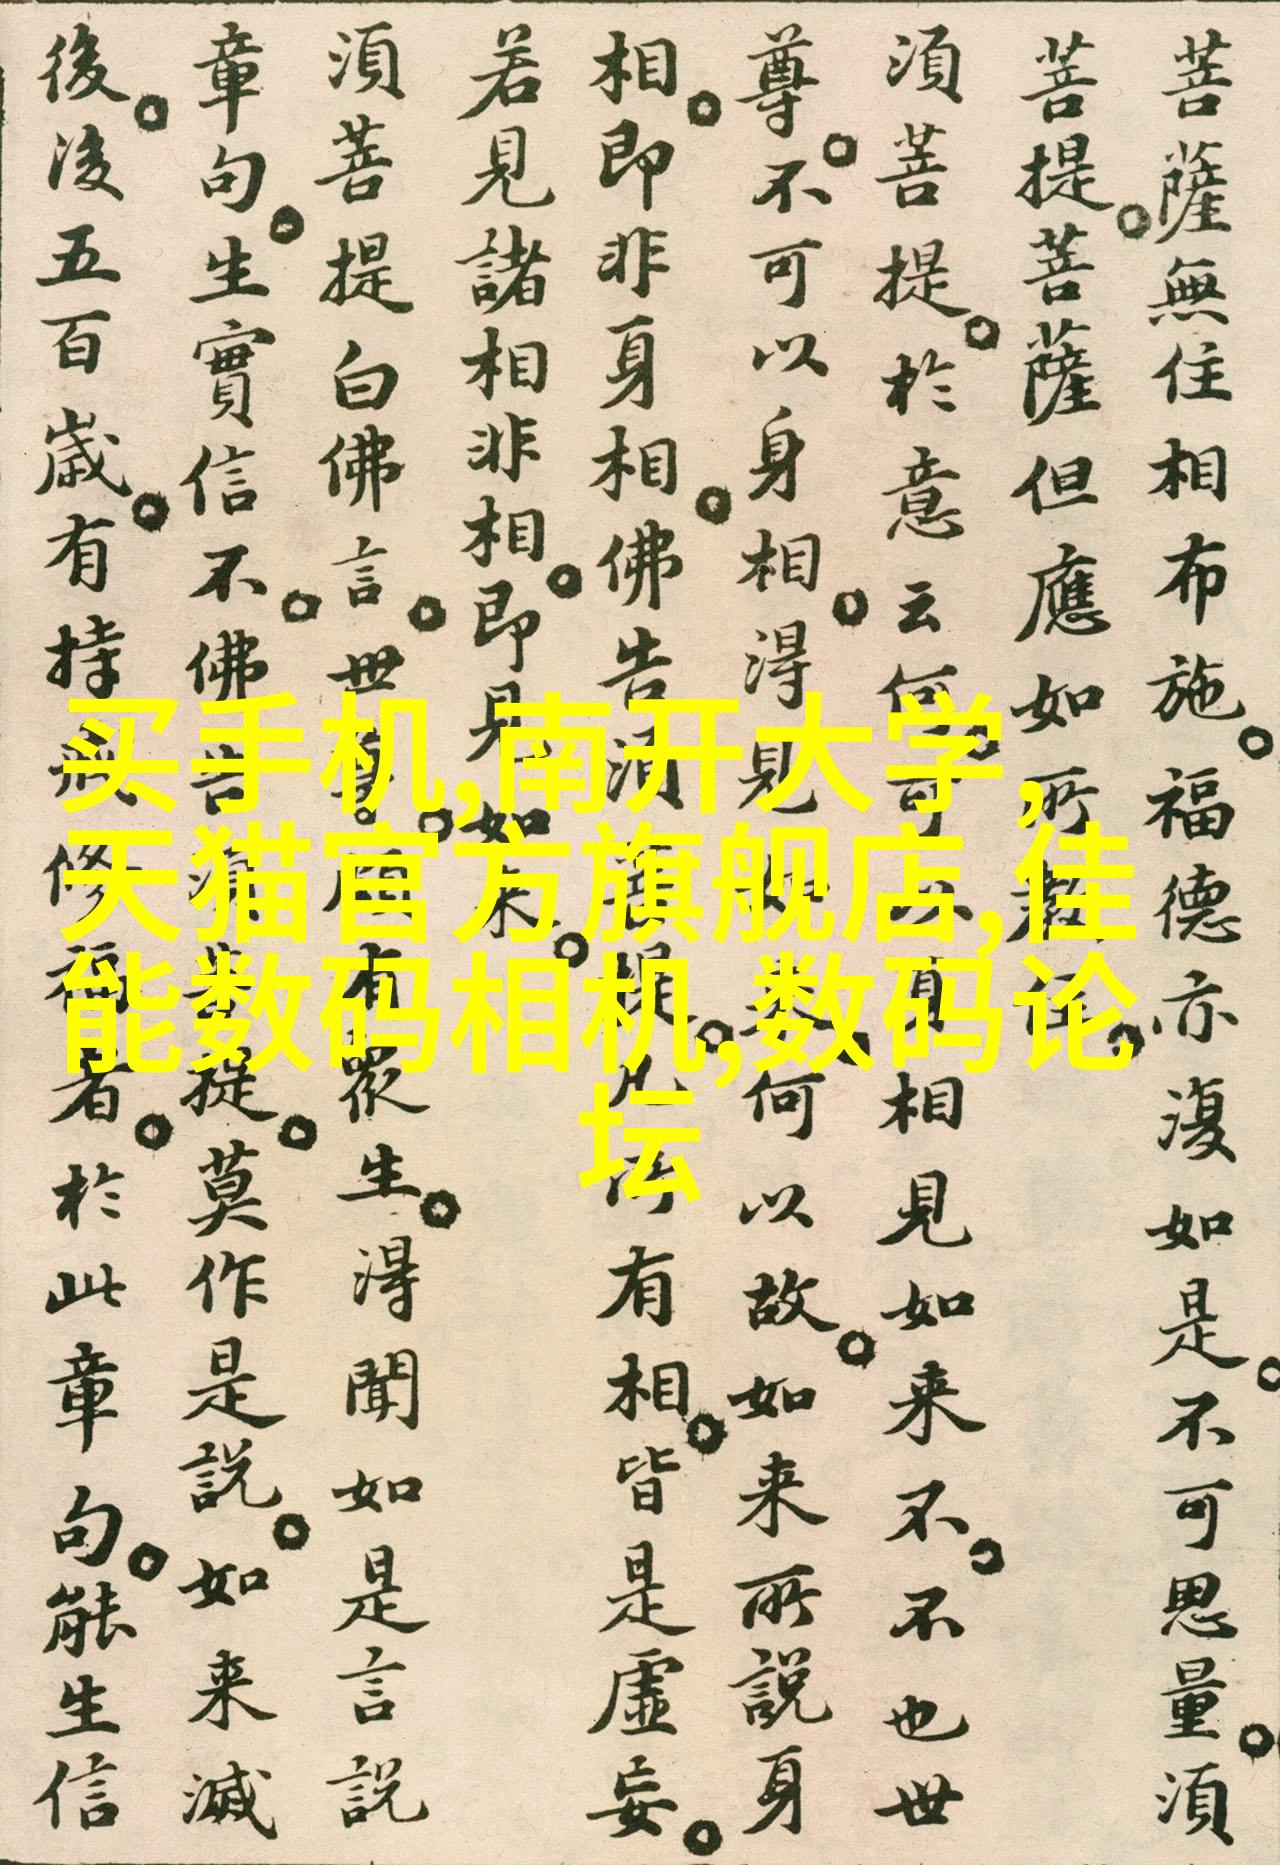 菩薩無住相布施。福德亦復如是。不可思量。須
菩提。菩薩但應如所教住。
須菩提。於意云何。可以身相見如来不。不也世
尊。不可以身相。得見如来。何以故。如来所説身
相。即非身相。佛告須菩提。凡所有相。皆是虛妄。
若見諸相非相。即見如来。
須菩提白佛言。世尊。頗有眾生。得聞如是言説
章句。生實信不。佛告須菩提。莫作是説。如来滅
後。後五百歲。有持戒修福者。於此章句。能生信
买手机,南开大学,
天猫官方旗舰店,佳
能数码相机,数码论
坛